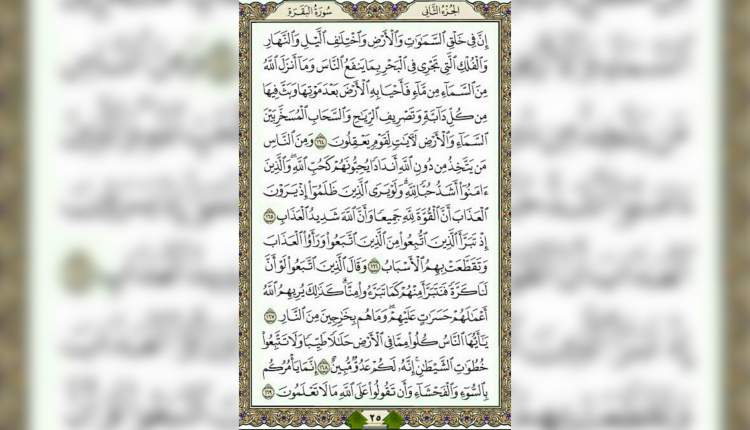 سُورَةُ البَقَرَةِ
الجُزْءُ الثَّانِي
إِنَّ فِي خَلْقِ السَّمَٰوَٰتِ وَالْأَرْضِ وَاخْتِلَٰفِ الَّيْلِ وَالنَّهَارِ
وَالْفُلْكِ الَّتِي تَجْرِي فِي الْبَحْرِ بِمَا يَنفَعُ النَّاسَ وَمَا أَنزَلَ اللَّهُ
مِنَ السَّمَاءِ مِن مَّاءٍ فَأَحْيَا بِهِ الْأَرْضَ بَعْدَ مَوْتِهَا وَبَثَّ فِيهَا
مِن كُلِّ دَابَّةٍ وَتَصْرِيفِ الرِّيَٰحِ وَالسَّحَابِ الْمُسَخَّرِ بَيْنَ
السَّمَاءِ وَالْأَرْضِ لَءَايَٰتٍ لِّقَوْمٍ يَعْقِلُونَ ١٦٤ وَمِنَ النَّاسِ
مَن يَتَّخِذُ مِن دُونِ اللَّهِ أَندَادًا يُحِبُّونَهُمْ كَحُبِّ اللَّهِ وَالَّذِينَ
ءَامَنُوا أَشَدُّ حُبًّا لِّلَّهِ وَلَوْ يَرَى الَّذِينَ ظَلَمُوا إِذْ يَرَوْنَ
الْعَذَابَ أَنَّ الْقُوَّةَ لِلَّهِ جَمِيعًا وَأَنَّ اللَّهَ شَدِيدُ الْعَذَابِ ١٦٥
إِذْ تَبَرَّأَ الَّذِينَ اتُّبِعُوا مِنَ الَّذِينَ اتَّبَعُوا وَرَأَوُا الْعَذَابَ
وَتَقَطَّعَتْ بِهِمُ الْأَسْبَابُ ١٦٦ وَقَالَ الَّذِينَ اتَّبَعُوا لَوْ أَنَّ
لَنَا كَرَّةً فَنَتَبَرَّأَ مِنْهُمْ كَمَا تَبَرَّءُوا مِنَّا كَذَٰلِكَ يُرِيهِمُ اللَّهُ
أَعْمَٰلَهُمْ حَسَرَٰتٍ عَلَيْهِمْ وَمَا هُم بِخَٰرِجِينَ مِنَ النَّارِ ١٦٧
يَٰأَيُّهَا النَّاسُ كُلُوا مِمَّا فِي الْأَرْضِ حَلَٰلًا طَيِّبًا وَلَا تَتَّبِعُوا
خُطُوَٰتِ الشَّيْطَٰنِ إِنَّهُ لَكُمْ عَدُوٌّ مُّبِينٌ ١٦٨ إِنَّمَا يَأْمُرُكُم
بِالسُّوءِ وَالْفَحْشَاءِ وَأَن تَقُولُوا عَلَى اللَّهِ مَا لَا تَعْلَمُونَ ١٦٩
٢٥